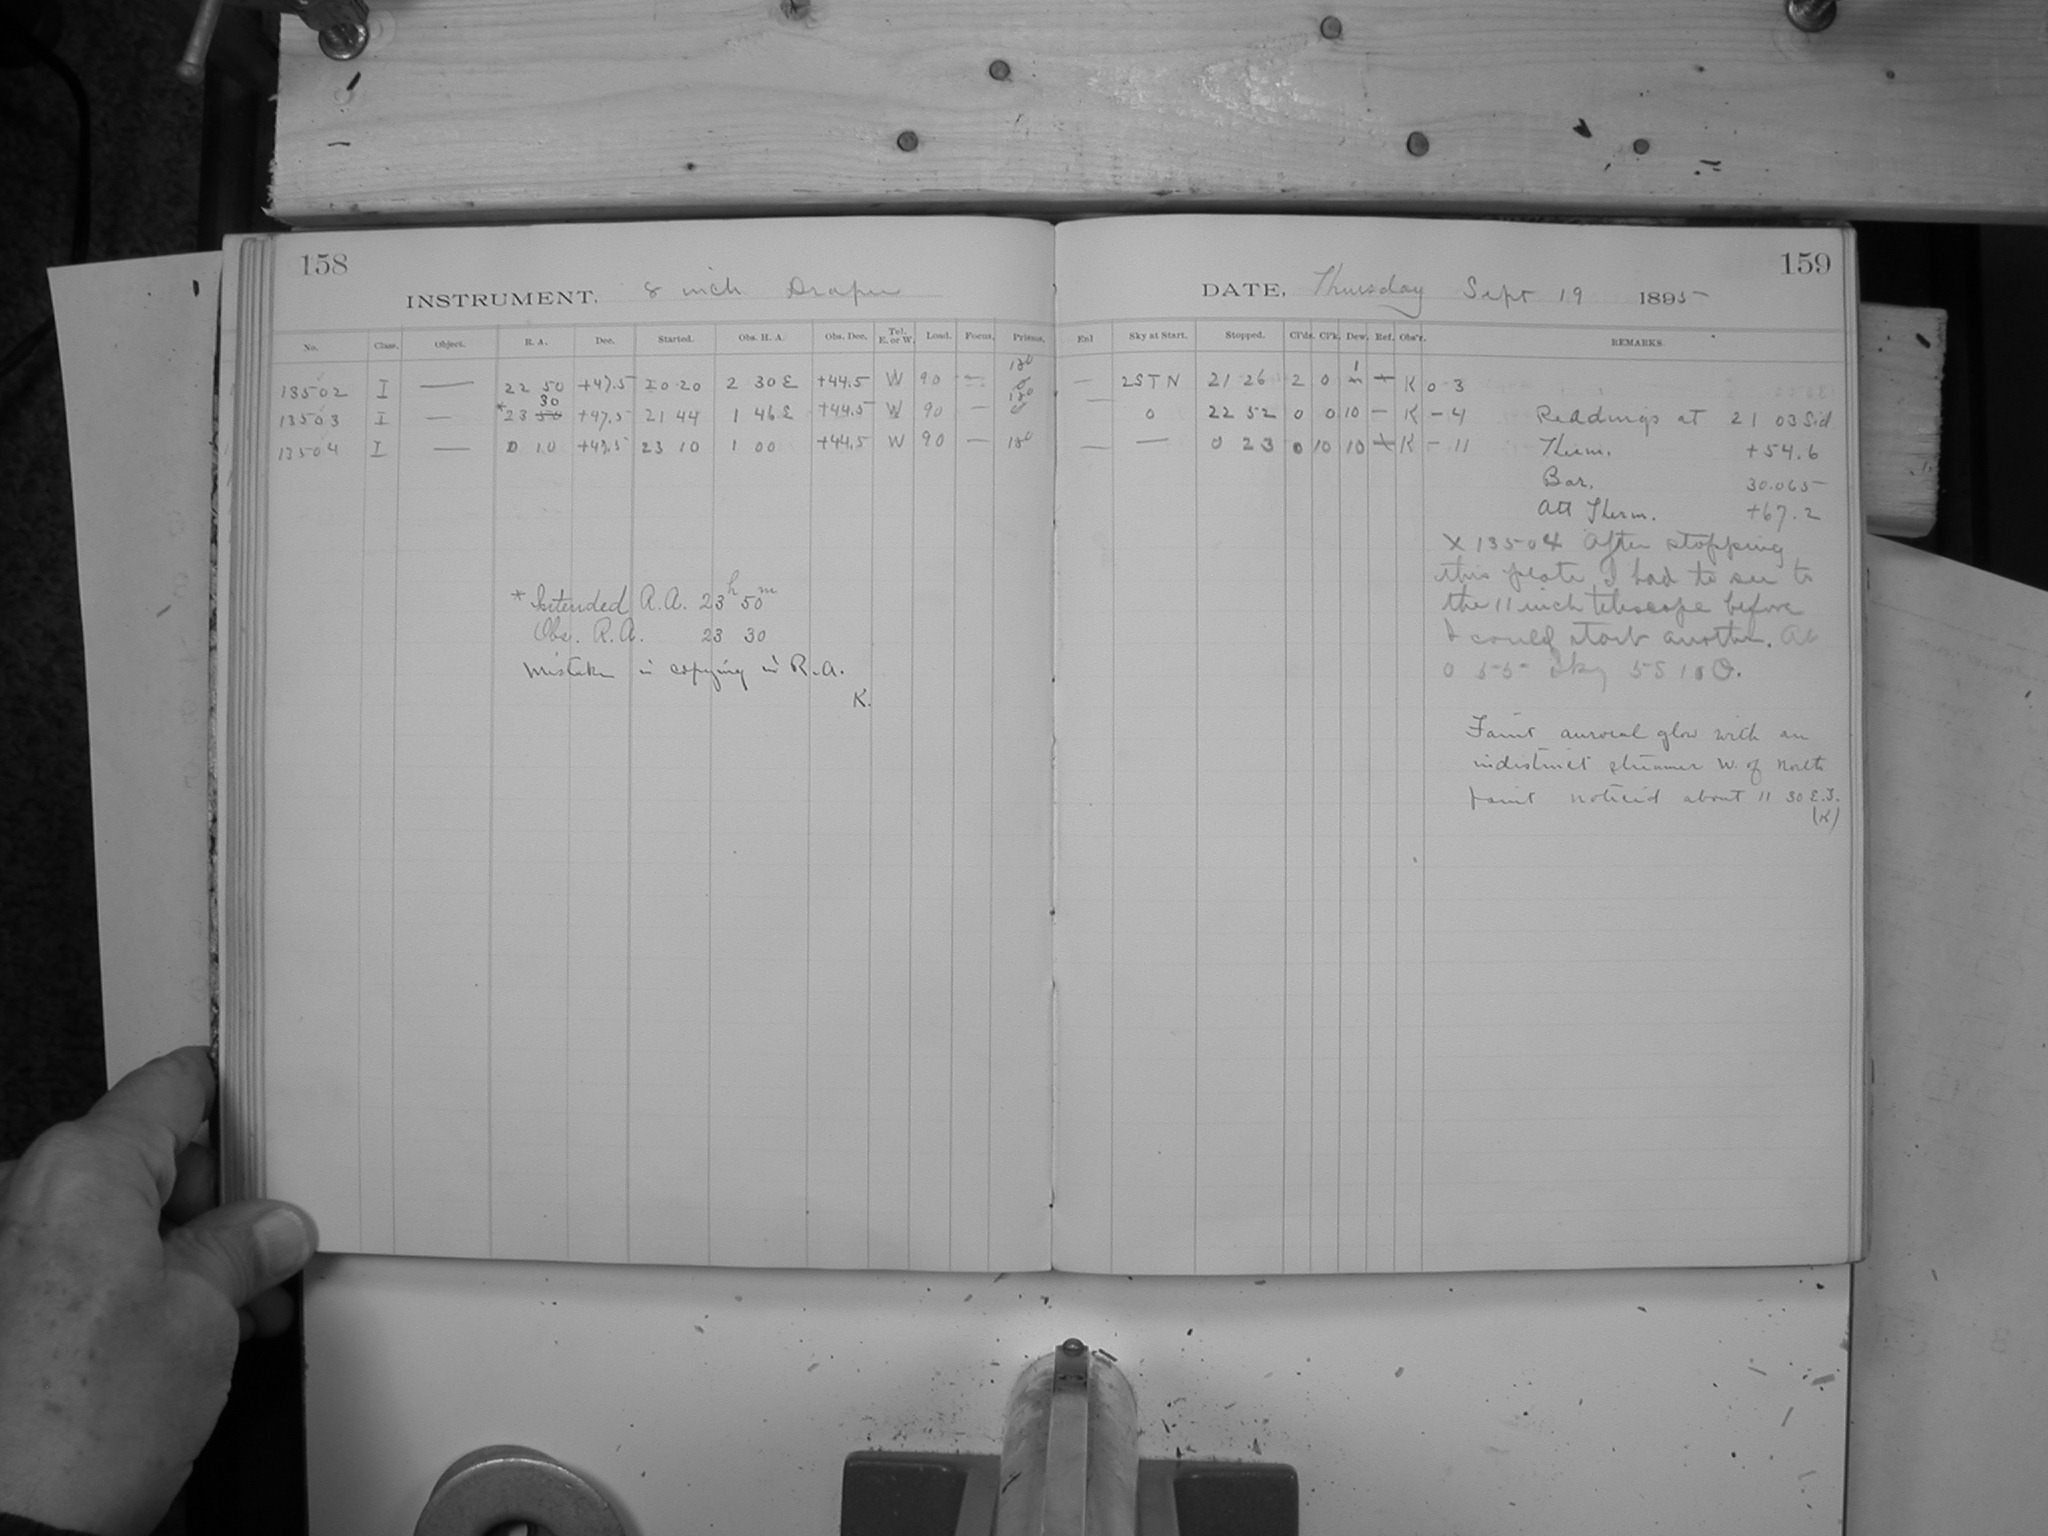 158
INSTRUMENT. 8 inch Draper
No. Class. Object. R. A. Dec. Started. Obs. H. A. Obs. Dec. Tel. E. or W. Load. Focus. Prisms.
13502 I — 22 50 +47.5 20 20 2 30 E +44.5 W 90 — 180 0
13503 I — * 23 50 30 +47.5 21 44 1 46 E +44.5 W 90 — 180 0
13504 I — 0 10 +47.5 23 10 1 00 +44.5 W 90 — 180
* Intended R.A. 23h 50m
Obs. R.A. 23 30
Mistake in copying in R.A.
K.
159
DATE, Thursday Sept 19 1895
Enl Sky at Start. Stopped. Cl'ds. Cl'k. Dew. Ref. Obs'r. REMARKS.
— 2STN 21 26 2 0 1 — K 0 3
— 0 22 52 0 0 10 — K – 4
— — 0 23 0 10 10 — K – 11
Readings at 21 03 Sid
Therm. +54.6
Bar. 30.065
Att Therm. +67.2
X 13504 After stopping
this plate I had to see to
the 11 inch telescope before
I could start another. At
0 55 Sky 5S 10
Faint auroral glow with an
indistinct streamer W. of North
point noticed about 11 30 E.T.
(K)